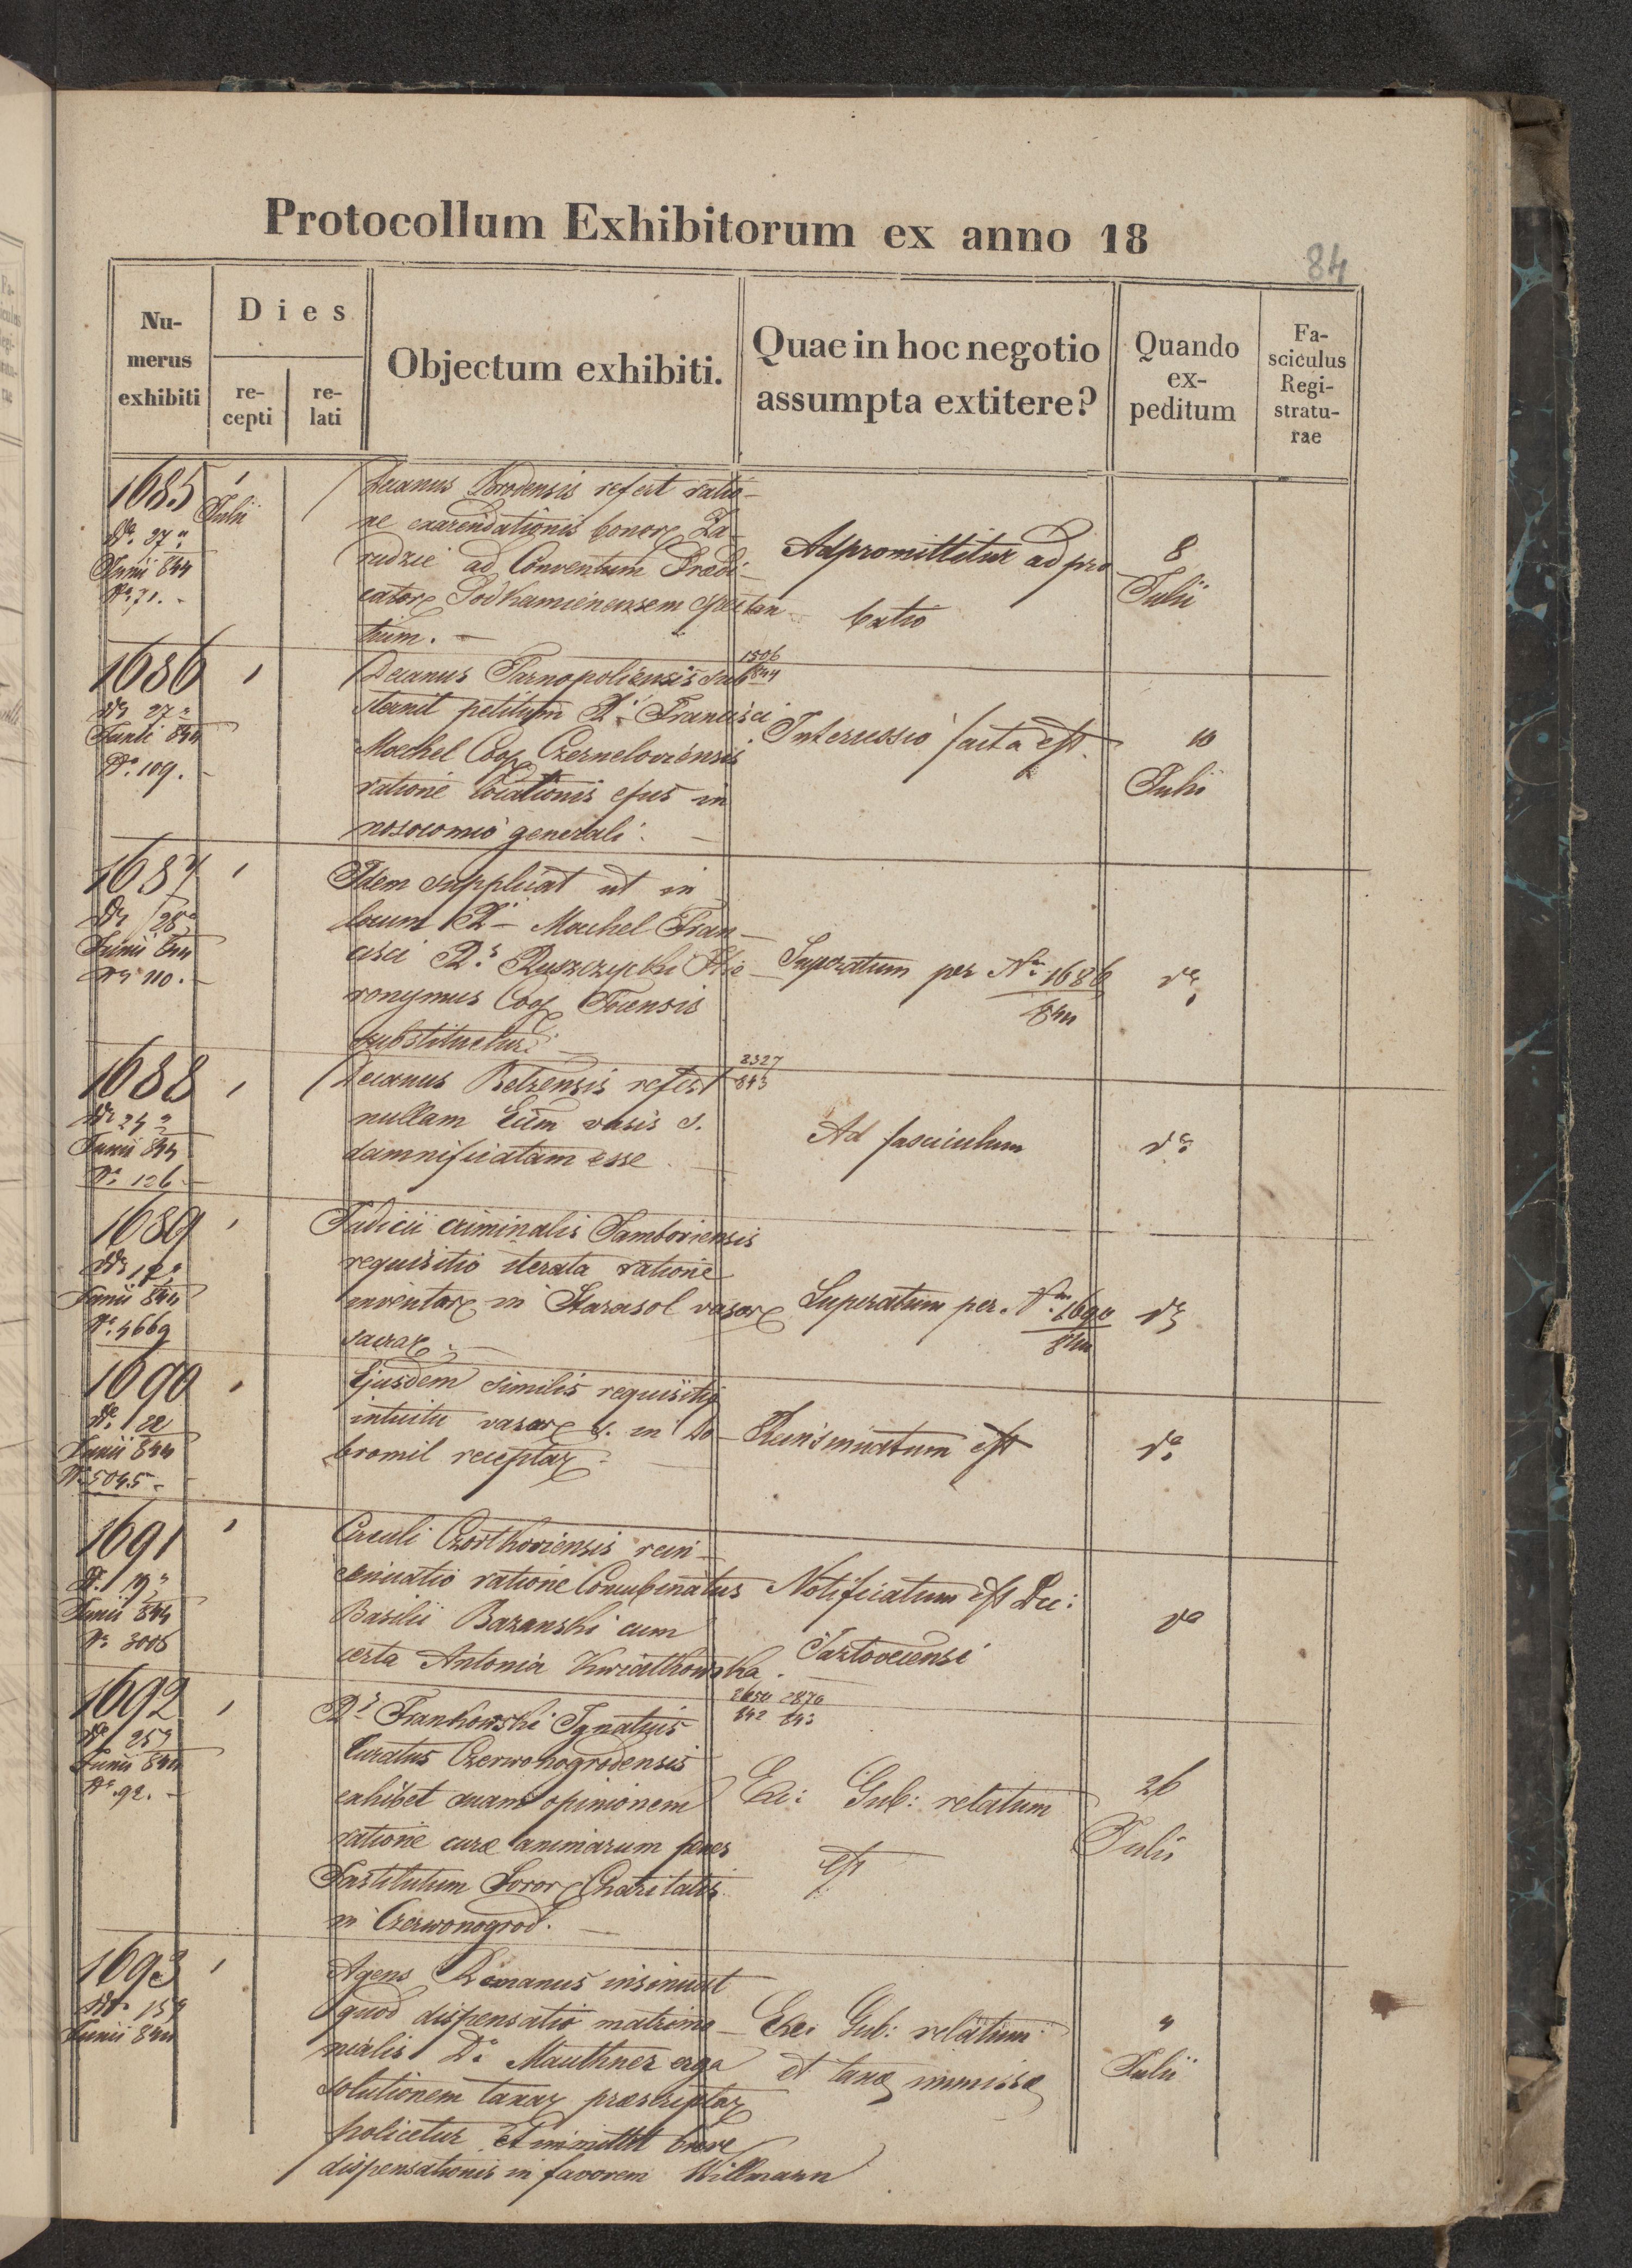 Protocollum Exhibitorum ex anno 18
84
Nu-
merus
exhibiti
Dies
re-
cepti
re-
lati
Objectum exhibiti.
Quae in hoc negotio
assumpta extitere?
Quando
ex-
peditum
Fa-
sciculus
Regi-
stratu-
rae
1685
1
Julii
Do. 27
Junii 844
No. 71.
Decanus Brodensis refert ratio-
ne exarendationis bonor Za-
rudzie ad Conventum Praedi-
cator Podkamienensem spectan
tium.
Adpromittitur ad pro
batio
8
Julii
1686
27
Junii 844
No. 109.
Decanus Tarnopoliensis sub
1506
844
sternit petitum Francisci
Moechel Coop Czernelovensis
ratione locationis ejus in
nosocomio generali.
Intercessio facta est.
10
Julii
1687
28
Junii 844
No 110.
Idem supplicat ut in
locum Mochel Fran-
cisci Rs. Ruszczycki Hie
ronymus Coop
substituetur.
Superatum per No. 1686
844
do
1688
24
Junii 844
No. 126
Decanus Belzensis refert
2327
843
nullam Eccm vasis s.
damnificatam esse
Ad fasciculum
do
1689
Junii 844
No. 4669
Judicii criminalis Samboriensis
requisitio iterata ratione
inventar in Starasol vasor
sacror
Superatum per. No. 1690
844
do
1690
Do. 22
Junii 844
No 5045
Ejusdem similis requisitio
intuitu vasor s. in Do-
bromil receptar
Reinsinuatum est
do
1691
Do. 19
Junii 844
No. 3006
Circuli Czortkoviensis rein-
sinuatio ratione Concubinatus
Basilii Bazanski cum
certa Antonia Kwiatkowska.
Notificatum est Dec:
Jazlovecensi
do
1692
25
Junii 844
No. 92.
Rs. Frankowski Ignatius
2650 2870
842 843
Curatus Czerwonogrodensis
exhibet suam opinionem
ratione curae animarum penes
Institutum Soror Charitatis
in Czerwonogrod.
Exc: Gub: relatum
est
26
Julii
1693
Do. 15
Junii 844
Agens Romanus insinuat
quod dispensatio matrimo-
nialis Do. Mauthner erga
solutionem taxar praescriptar
policetur et immittit breve
dispensationis in favorem Willmann
Exc: Gub: relatum
et taxae immissae
4
Julii